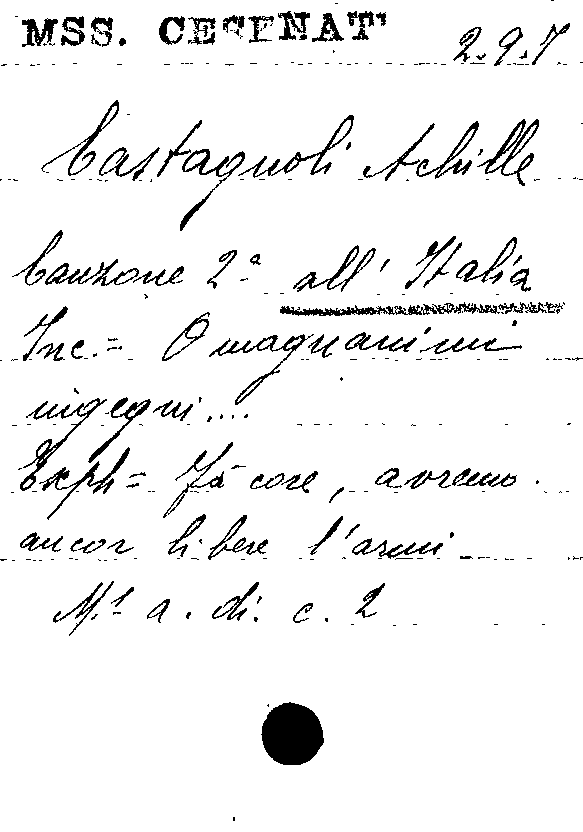 MSS. CESENAT
2.9.7
Castagnoli Achille
Canzone 2ª all' Italia
Inc.= O magnanimi
ingegni....
Exph= Fà core, avremo
ancor libere l'armi
M.S a. di. c. 2